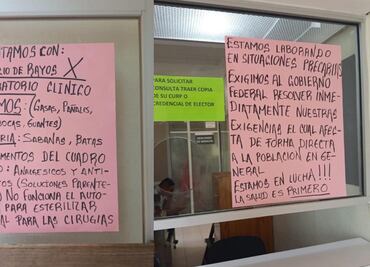 TAMOS CON:
IO DE RAYOS X
RATORIO CLÍNICO
MOS: (GASAS, PAÑALES,
BOCAS, GUANTES)
RIA: SABANAS, BATAS
MENTOS DEL CUADRO
O: ANALGESICOS Y ANTI-
TOS (SOLUCIONES PARENTE-
) NO FUNCIONA EL AUTO-
PARA ESTERILIZAR
AL PARA LAS CIRUGIAS
PARA SOLICITAR
CONSULTA TRAER COPIA
DE SU CURP O
CREDENCIAL DE ELECTOR
ESTAMOS LABORANDO
EN SITUACIONES PRECARIAS
EXIGIMOS AL GOBIERNO
FEDERAL RESOLVER INME-
DIATAMENTE NUESTRAS
EXIGENCIA EL CUAL AFEC-
TA DE FORMA DIRECTA
A LA POBLACION EN GE-
NERAL
ESTAMOS EN LUCHA!!!
LA SALUD ES PRIMERO